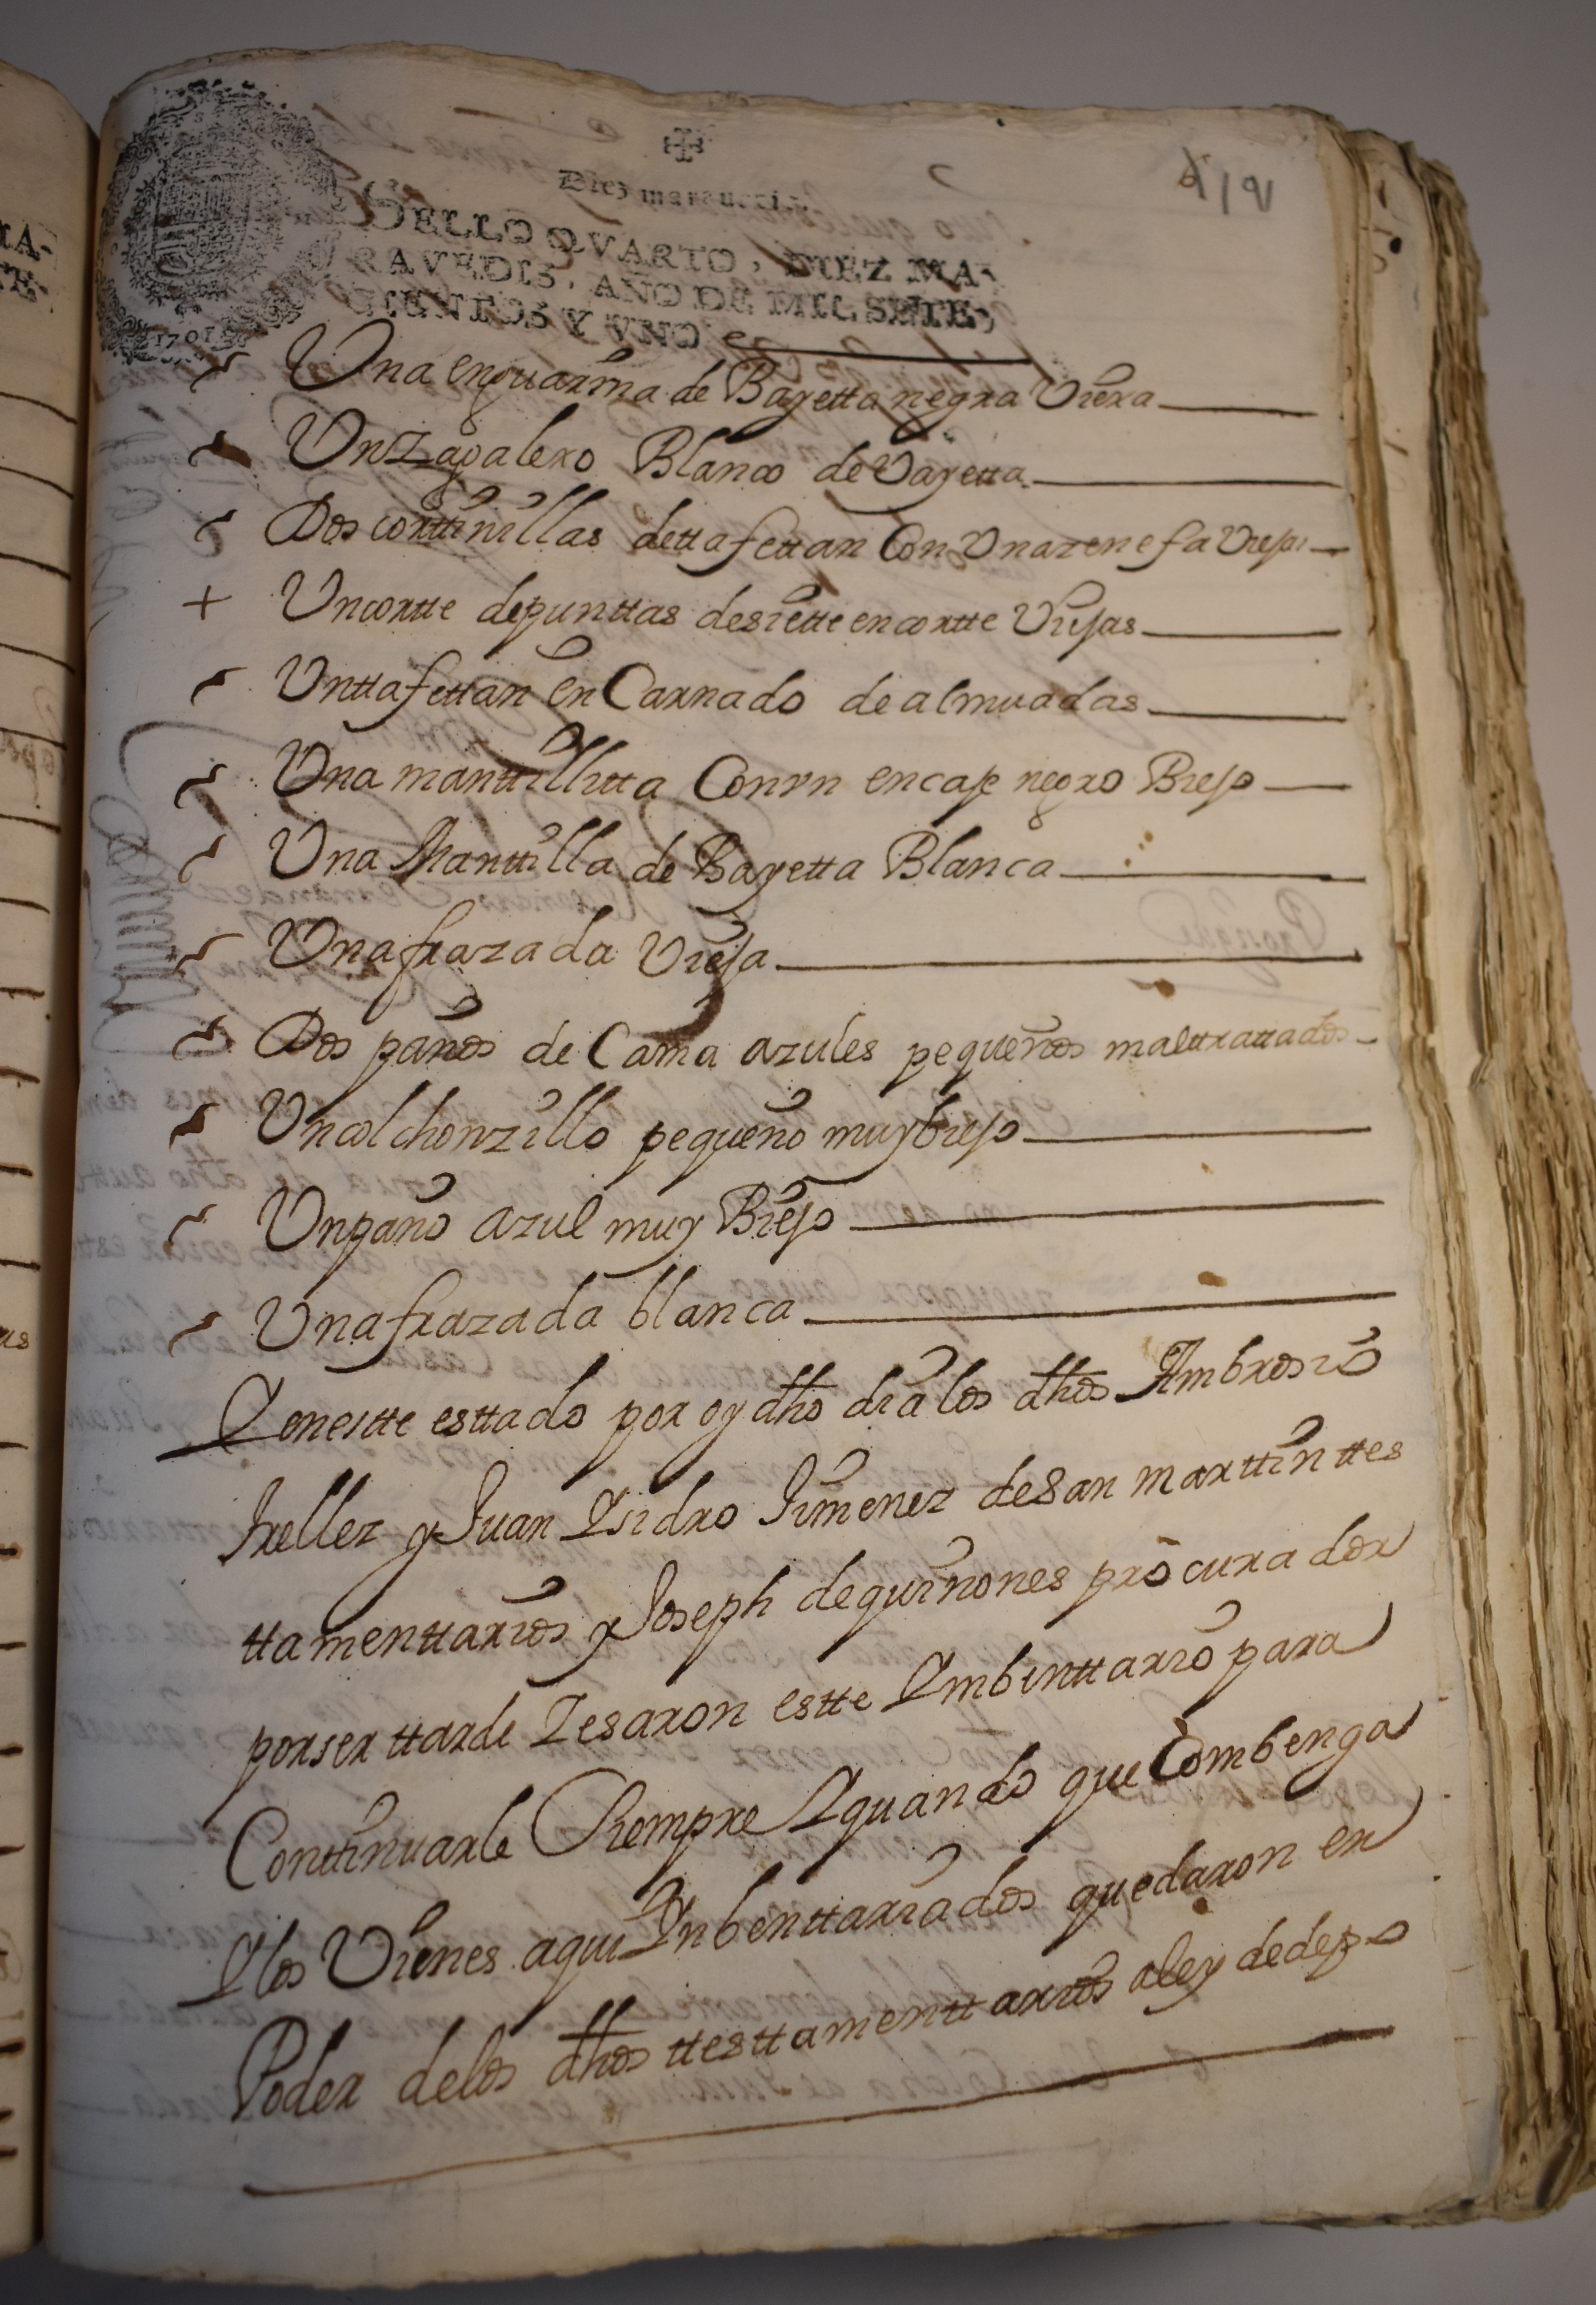 Diez maravedis
SELLO QVARTO, DIEZ MA-
RAVEDIS, AÑO DE MIL SETE-
CIENTOS Y VNO
1701
Una enguarina de Bayetta negra Viexa
Un Zagalexo Blanco de Vayetta
Dos corttinillas de ttafettan Con Vna zenefa Viejas
+ Un cortte de punttas de siette en cortte Viejas
Un ttafettan en Carnado de almuadas
Una manttillitta Con vn encaje negro Biejo
Una Manttilla de Bayetta Blanca
Una frazada Vieja
Dos paños de Cama azules pequeños malttrattados
Un colchonzillo pequeño muy biejo
Un paño azul muy Biejo
Una frazada blanca
Y en estte esttado por oy dho dia los dhos Ambrosio
Tellez y Juan Ysidro Jimenez de San Marttin ttes
ttamenttarios y Joseph de quiñones procurador
por ser ttarde Zesaron estte Ymbinttario para
Conttinuarle Siempre Y quando que Combenga
Y los Vienes aqui Ynbenttariados quedaron en
Poder de los dhos ttesttamenttarios a ley de depo